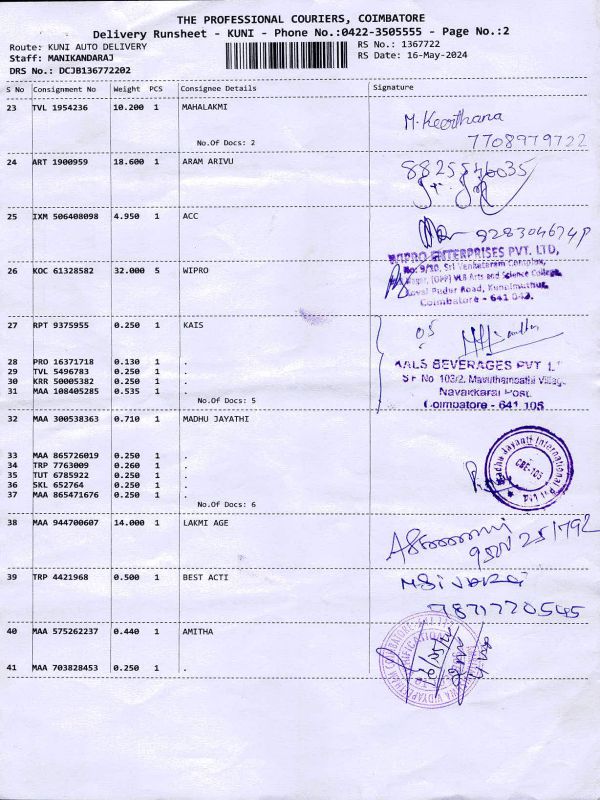 THE PROFESSIONAL COURIERS, COIMBATORE
Delivery Runsheet - KUNI - Phone No.:0422-3505555 - Page No.:2
Route: KUNI AUTO DELIVERY RS No.: 1367722
Staff: MANIKANDARAJ RS Date: 16-May-2024
DRS No.: DCJB136772202
S No Consignment No Weight PCS Consignee Details Signature
23 TVL 1954236 10.200 1 MAHALAKMI
M. Keerthana
No.Of Docs: 2 7708979722
24 ART 1900959 18.600 1 ARAM ARIVU 8825546035
25 IXM 506408098 4.950 1 ACC
WIPRO ENTERPRISES PVT. LTD,
No: 9/10, Sri Venkateram Complex,
26 KOC 61328582 32.000 5 WIPRO Nagar, (OPP) VLB Arts and Science College,
Kovai Pudur Road, Kuniamuthur,
Coimbatore - 641 042.
27 RPT 9375955 0.250 1 KAIS 05
28 PRO 16371718 0.130 1 .
29 TVL 5496783 0.250 1 . KALS BEVERAGES PVT LT
30 KRR 50005382 0.250 1 . S F No 103/2, Mavuthampathi Village
31 MAA 108405285 0.535 1 . Navakkarai Post,
No.Of Docs: 5 Coimbatore - 641 105
32 MAA 300538363 0.710 1 MADHU JAYATHI
33 MAA 865726019 0.250 1 . Madhu Jayanti International Pvt Ltd
34 TRP 7763009 0.260 1 . CBE-105
35 TUT 6785922 0.250 1 .
36 SKL 652764 0.250 1 .
37 MAA 865471676 0.250 1 .
No.Of Docs: 6
38 MAA 944700607 14.000 1 LAKMI AGE
39 TRP 4421968 0.500 1 BEST ACTI M Sivaraj
7871770545
40 MAA 575262237 0.440 1 AMITHA
41 MAA 703828453 0.250 1 .